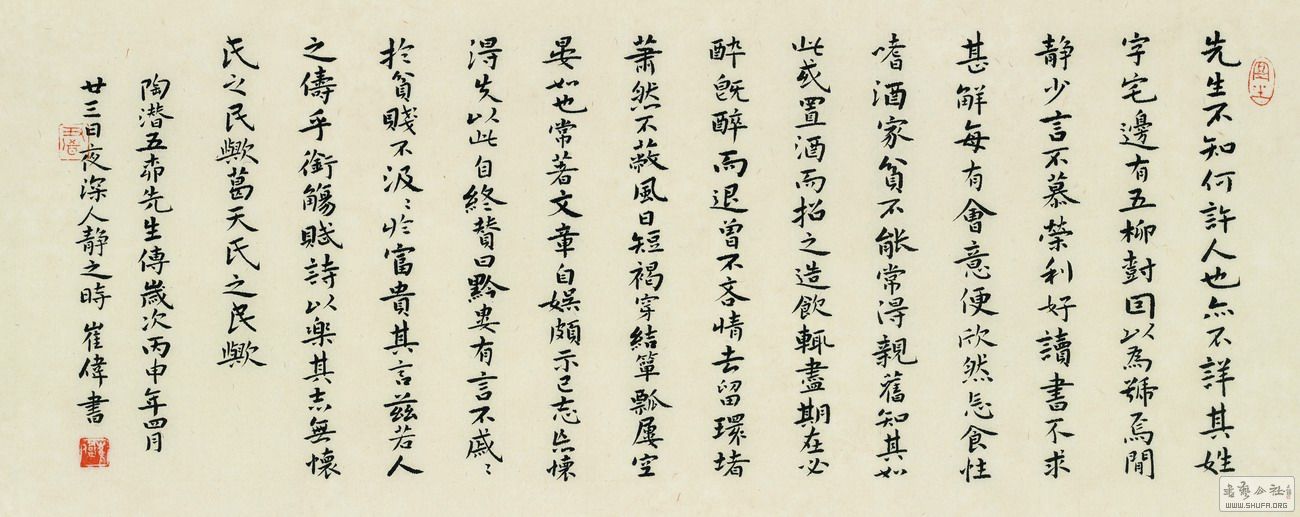 先生不知何許人也亦不詳其姓
字宅邊有五柳樹因以為號焉閒
静少言不慕榮利好讀書不求
甚解每有會意便欣然忘食性
嗜酒家貧不能常得親舊知其如
此或置酒而招之造飲輒盡期在必
醉既醉而退曾不吝情去留環堵
蕭然不蔽風日短褐穿結簞瓢屢空
晏如也常著文章自娛頗示己志忘懷
得失以此自終贊曰黔婁有言不戚〻
於貧賤不汲〻於富貴其言兹若人
之儔乎銜觴賦詩以樂其志無懷
氏之民歟葛天氏之民歟
陶潛五柳先生傳歲次丙申年四月
廿三日夜深人静之時 崔偉書
書藝公社
WWW.SHUFA.ORG